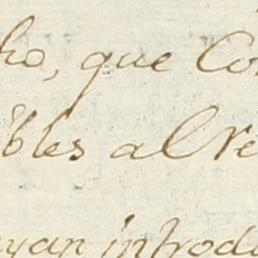 ho, que Co
ibles al re
yan introdu